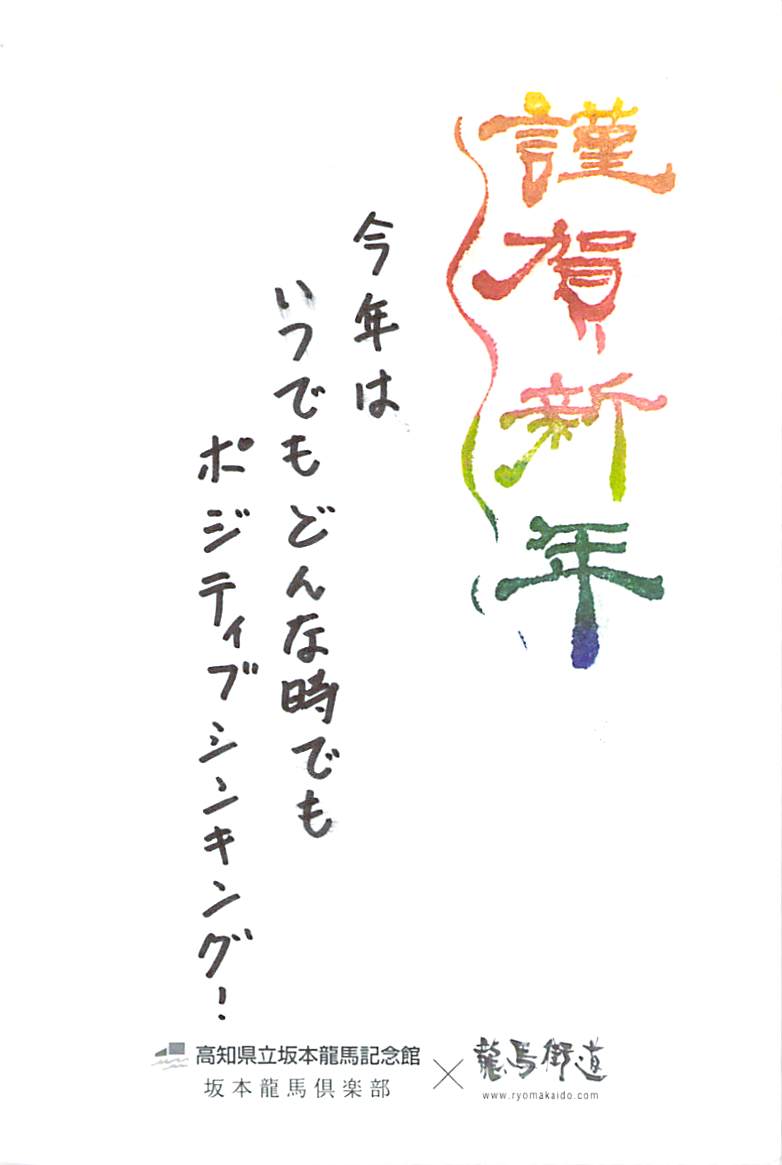 謹賀新年
今年は
いつでもどんな時でも
ポジティブシンキング!
高知県立坂本龍馬記念館
坂本龍馬倶楽部
×
龍馬街道
www.ryomakaido.com